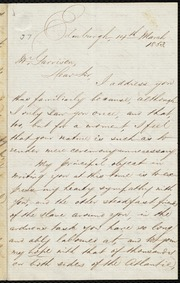 23 Edinburgh, 14th March
1853
Mr Garrison,
Dear Sir
I address you
thus familiarly because, although
I only saw you once, and that
too but for a moment, I feel
that your nature is such as to
render mere ceremony unnecessary
My principal object in
writing you at this time is to ex-
press my hearty sympathy with
you, and the other steadfast friends
of the slave around you, in the
arduous task you have so long
and ably laboured at, and to join
my hope with that of thousands
on both sides of the Atlantic,